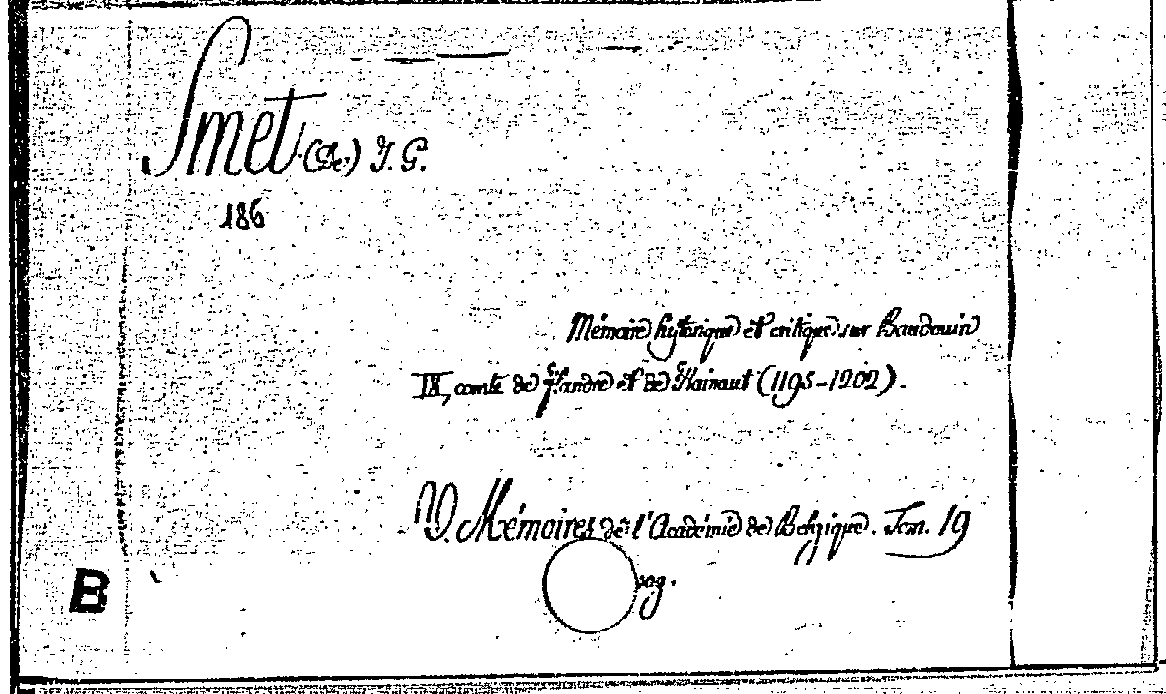 Smet (de) J. G.
186
Mémoire historique et critique sur Baudouin
IX, comte de Flandre et de Hainaut (1195-1202).
V Mémoires de l'Académie de Belgique. Tom. 19
pag.
B